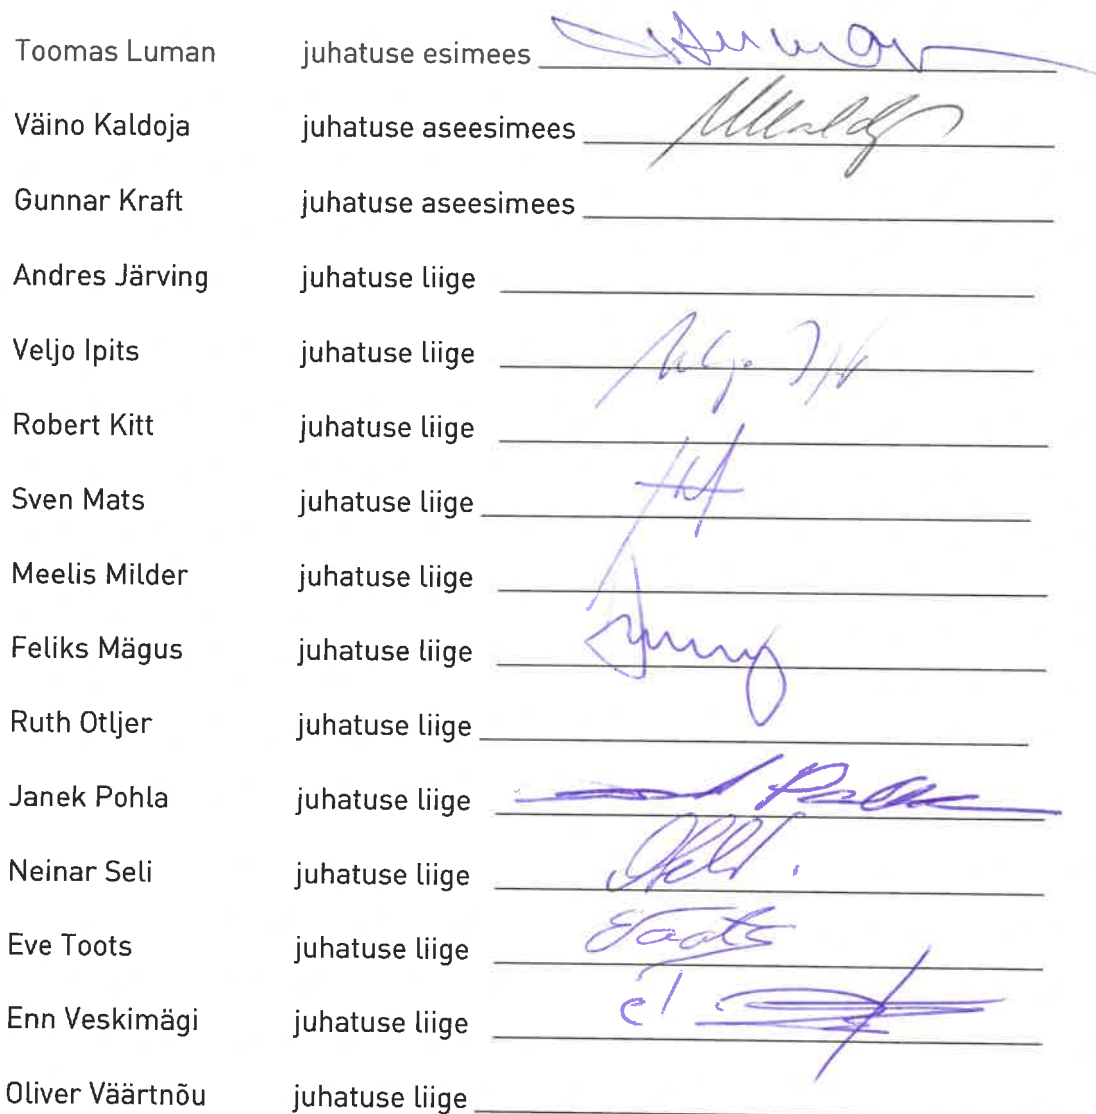 Toomas Luman juhatuse esimees
Väino Kaldoja juhatuse aseesimees
Gunnar Kraft juhatuse aseesimees
Andres Järving juhatuse liige
Veljo Ipits juhatuse liige
Robert Kitt juhatuse liige
Sven Mats juhatuse liige
Meelis Milder juhatuse liige
Feliks Mägus juhatuse liige
Ruth Otljer juhatuse liige
Janek Pohla juhatuse liige
Neinar Seli juhatuse liige
Eve Toots juhatuse liige
Enn Veskimägi juhatuse liige
Oliver Väärtnõu juhatuse liige